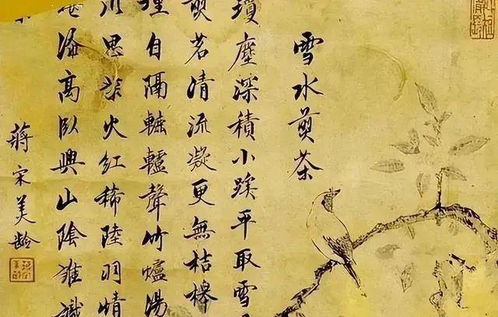 雪水煎茶
瓊塵深積小蹊平取雪
煎茗清流凝更無桔槔
自隔轆轤聲竹爐湯
思火紅稀陸羽情
高臥興山陰誰識
蔣宋美齡